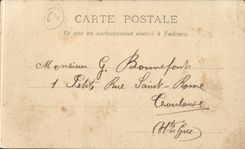 64
CARTE POSTALE
Ce côté est exclusivement réservé à l'adresse.
Monsieur G. Bonnefont
1 Petite Rue Saint-Rome
Toulouse
(Hte Gne)